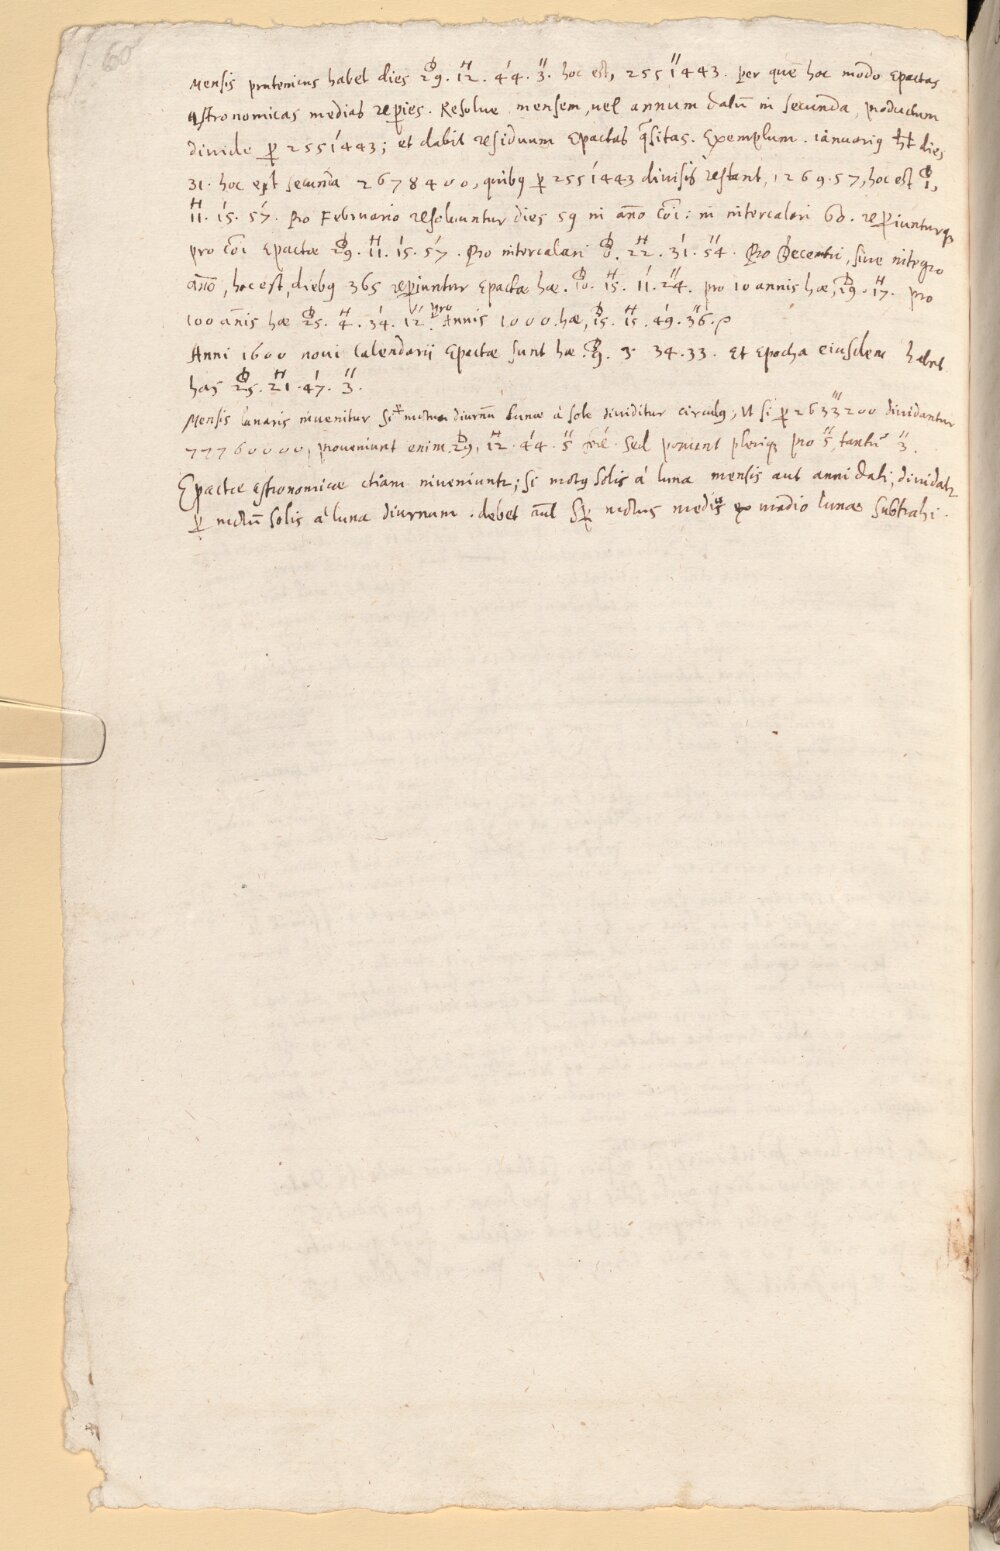 60
Mensis prutenicus habet dies 29. 12. 44. 3. hoc est, 2551443. per quē hoc modo Epactas
Astronomicas medias reperies. Resolve mensem, vel annum datū in secunda, productum
divide per 2551443; et dabit residuum Epactas q̃sitas. Exemplum. Ianuariꝰ ht dies
31. hoc est secunda 2678400, quibꝰ per 2551443 divisis restant, 126957, hoc est 1,
11. 15. 57. Pro Februario resolvuntur dies 59 in año cōi: in intercalari 60. reperiunturqꝫ
pro cōi Epactæ 29. 11. 15. 57. Pro intercalari 0. 22. 31. 54. Pro Decembri, sive integro
año, hoc est, diebꝰ 365 reperiuntur Epactæ hæ. 10. 15. 11. 24. pro 10 annis hæ, 19. 17. pro
100 añis hæ 25. 4. 34. 12. pro Annis 1000. hæ, 15. 15. 49. 36.
Anni 1600 novi Calendarii Epactæ sunt hæ. 9. 3. 34. 33. Et Epocha eiusdem habet
has 25. 21. 47. 3.
Mensis lunaris invenitur si per motum diurnū Lunæ à sole dividitur circulꝰ, Ut si per 2633200 dividantur
77760000, proveniunt enim 29, 12. 44. 5 ferè. Sed ponunt pleriqꝫ pro 5, tantū 3.
Epactæ astronomicæ etiam inveniuntr; si motꝰ Solis á luna mensis aut anni dati, dividatr
per motū solis á luna diurnum. debet aūt semper motus medius ex medio Lunæ subtrahi.